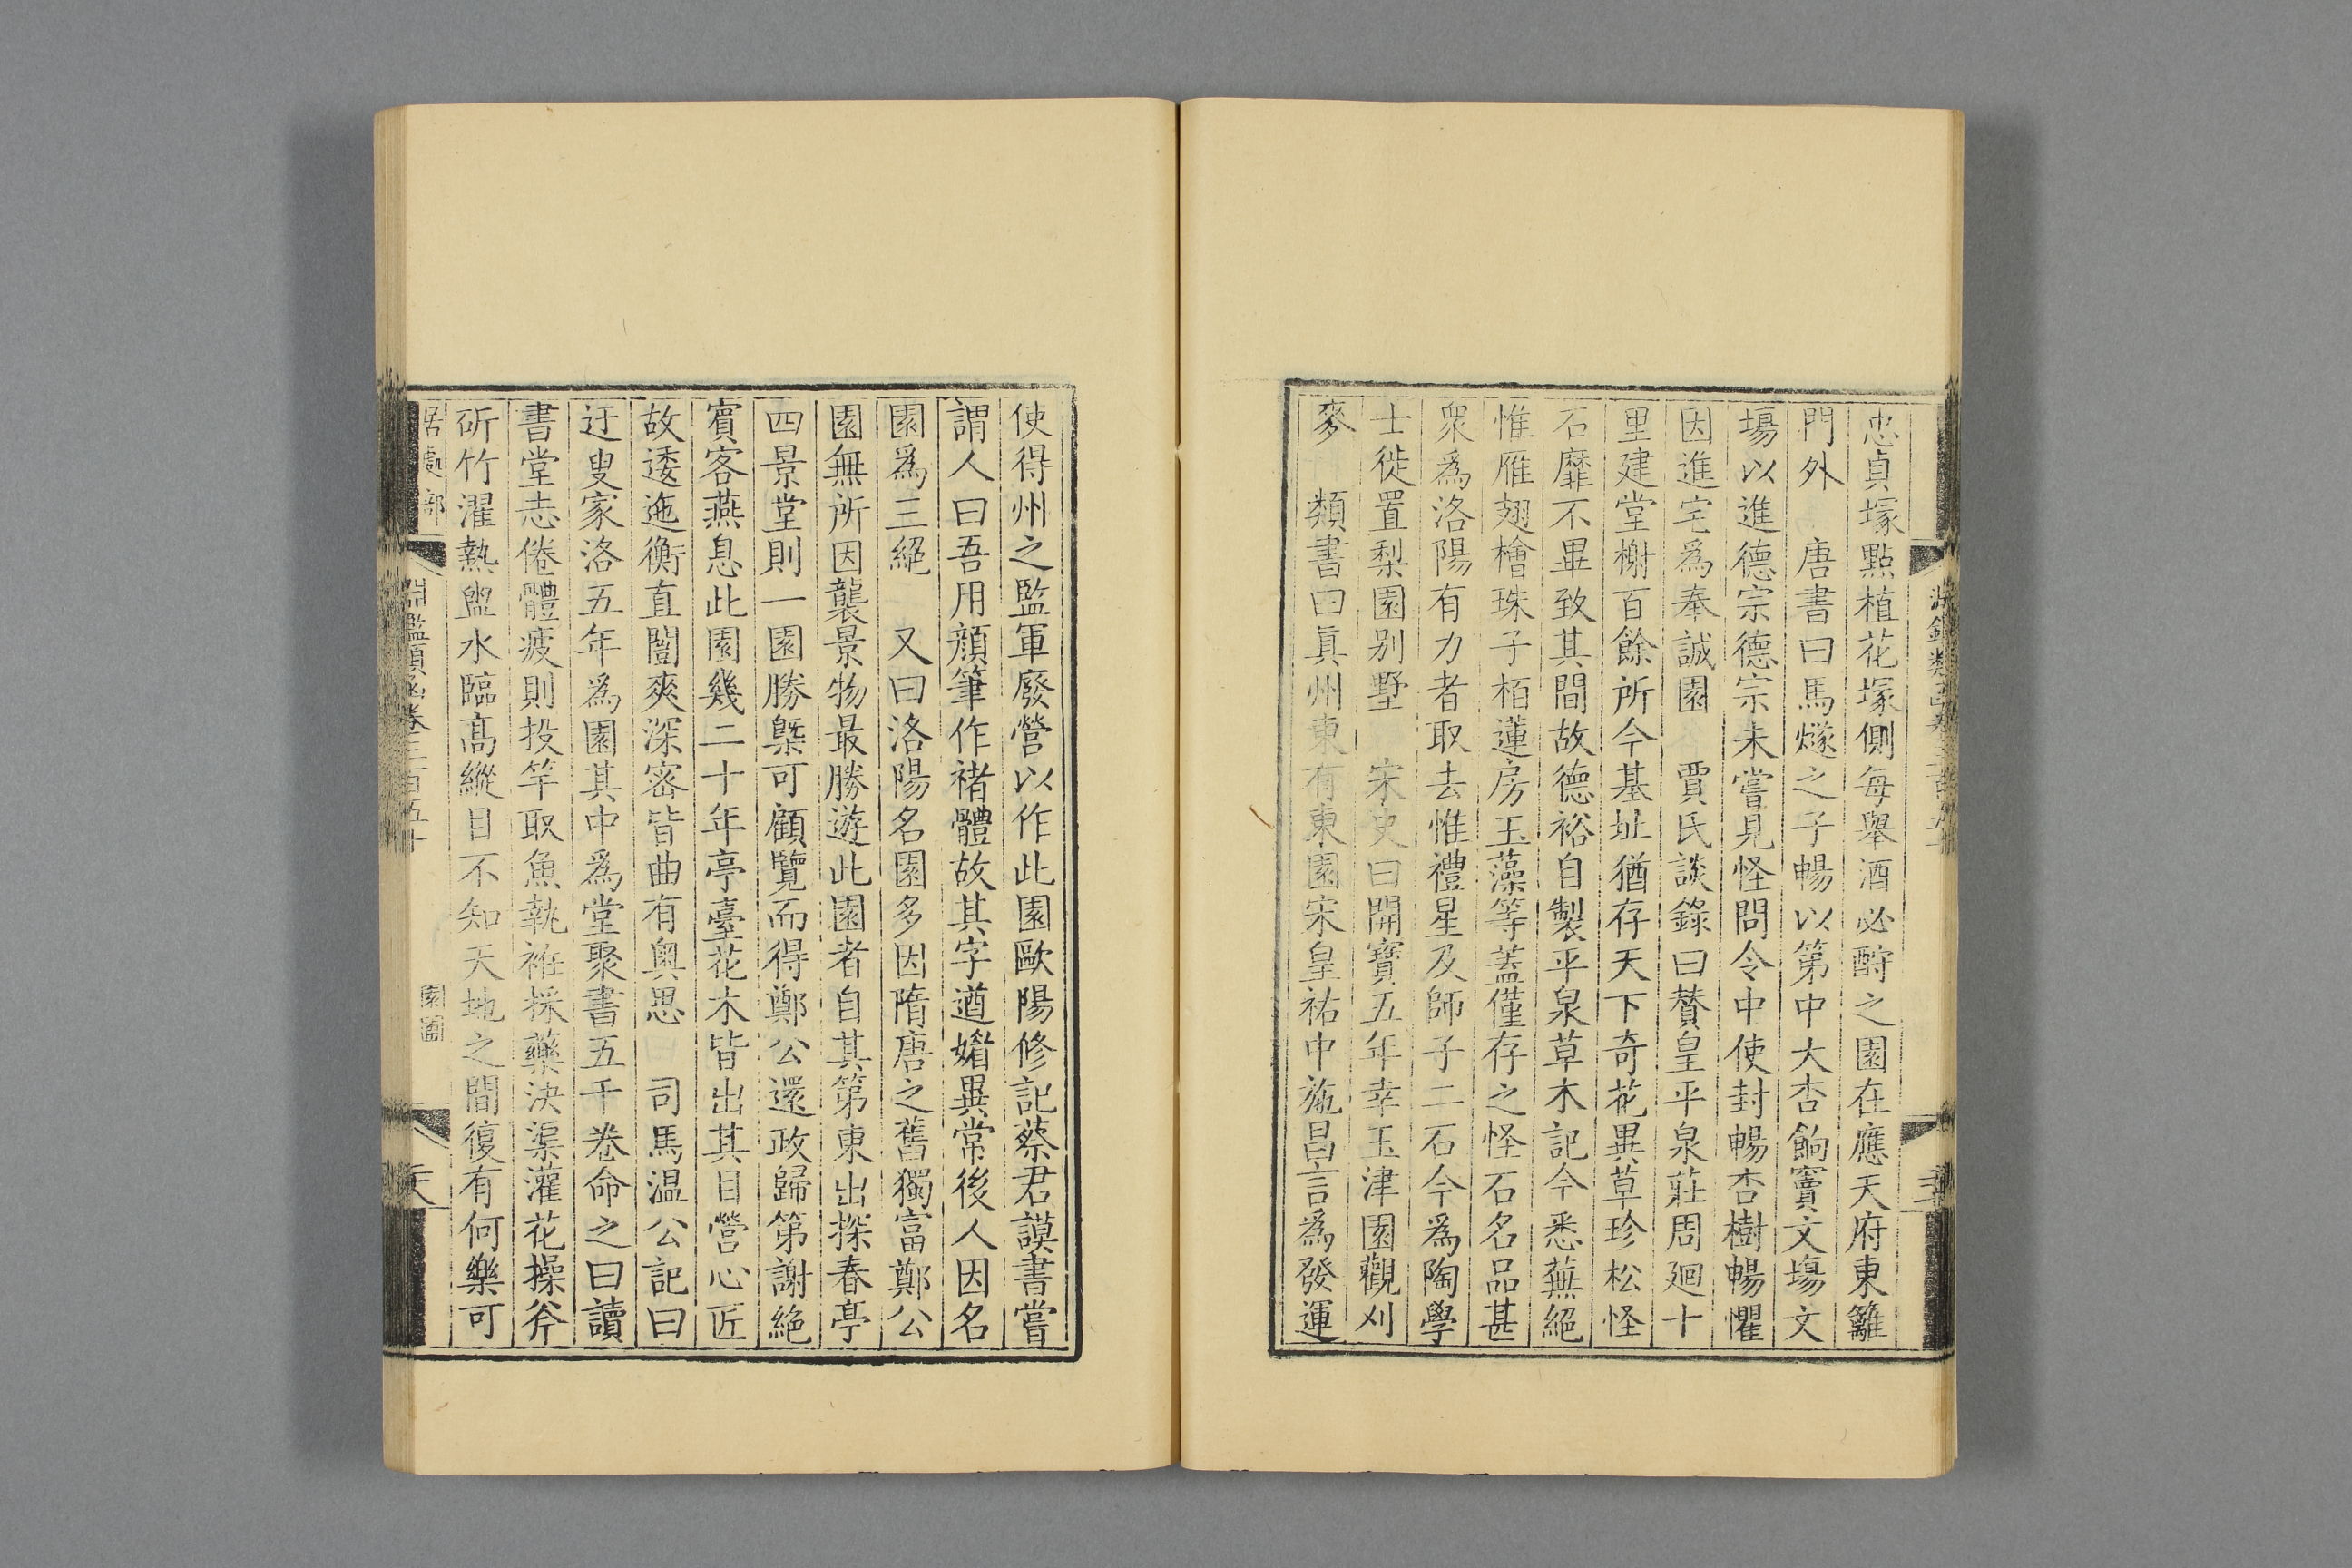 忠貞塚㸃植花塚側每舉酒必酹之園在應天府東籬
門外　唐書曰馬燧之子暢以第中大杏餉竇文塲文
塲以進德宗德宗未嘗見怪問令中使封暢杏樹暢懼
因進宅爲奉誠園　賈氏談錄曰贊皇平泉莊周廻十
里建堂榭百餘所今基址猶存天下奇花異草珍松怪
石靡不畢致其間故德裕自製平泉草木記今悉蕪絕
惟雁翅檜珠子栢蓮房玉藻等葢僅存之怪石名品甚
衆爲洛陽有力者取去惟禮星及師子二石今爲陶學
士徙置梨園别墅　宋史曰開寶五年幸玉津園觀刈
麥　類書曰眞州東有東園宋皇祐中施昌言爲發運
使得州之監軍廢營以作此園歐陽修記蔡君謨書嘗
謂人曰吾用顔筆作褚體故其字遒媚異常後人因名
園爲三絕　又曰洛陽名園多因隋唐之舊獨富鄭公
園無所因襲景物最勝遊此園者自其第東出探春亭
四景堂則一園勝槩可顧覽而得鄭公還政歸第謝絶
賓客燕息此園幾二十年亭臺花木皆出其目營心匠
故逶迤衡直闓爽深密皆曲有奥思　司馬温公記曰
迂叟家洛五年爲園其中爲堂聚書五千卷命之曰讀
書堂志倦體疲則投竿取魚執袵採藥決渠灌花操斧
斫竹濯熱盥水臨高縱目不知天地之間復有何樂可
居處部
淵鑑類函卷三百五十
園圃